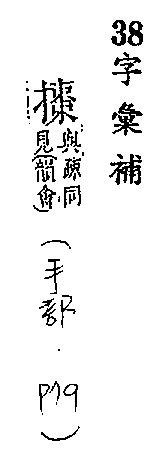 38字彙補
與疎同
見簡會
(手部.P79)